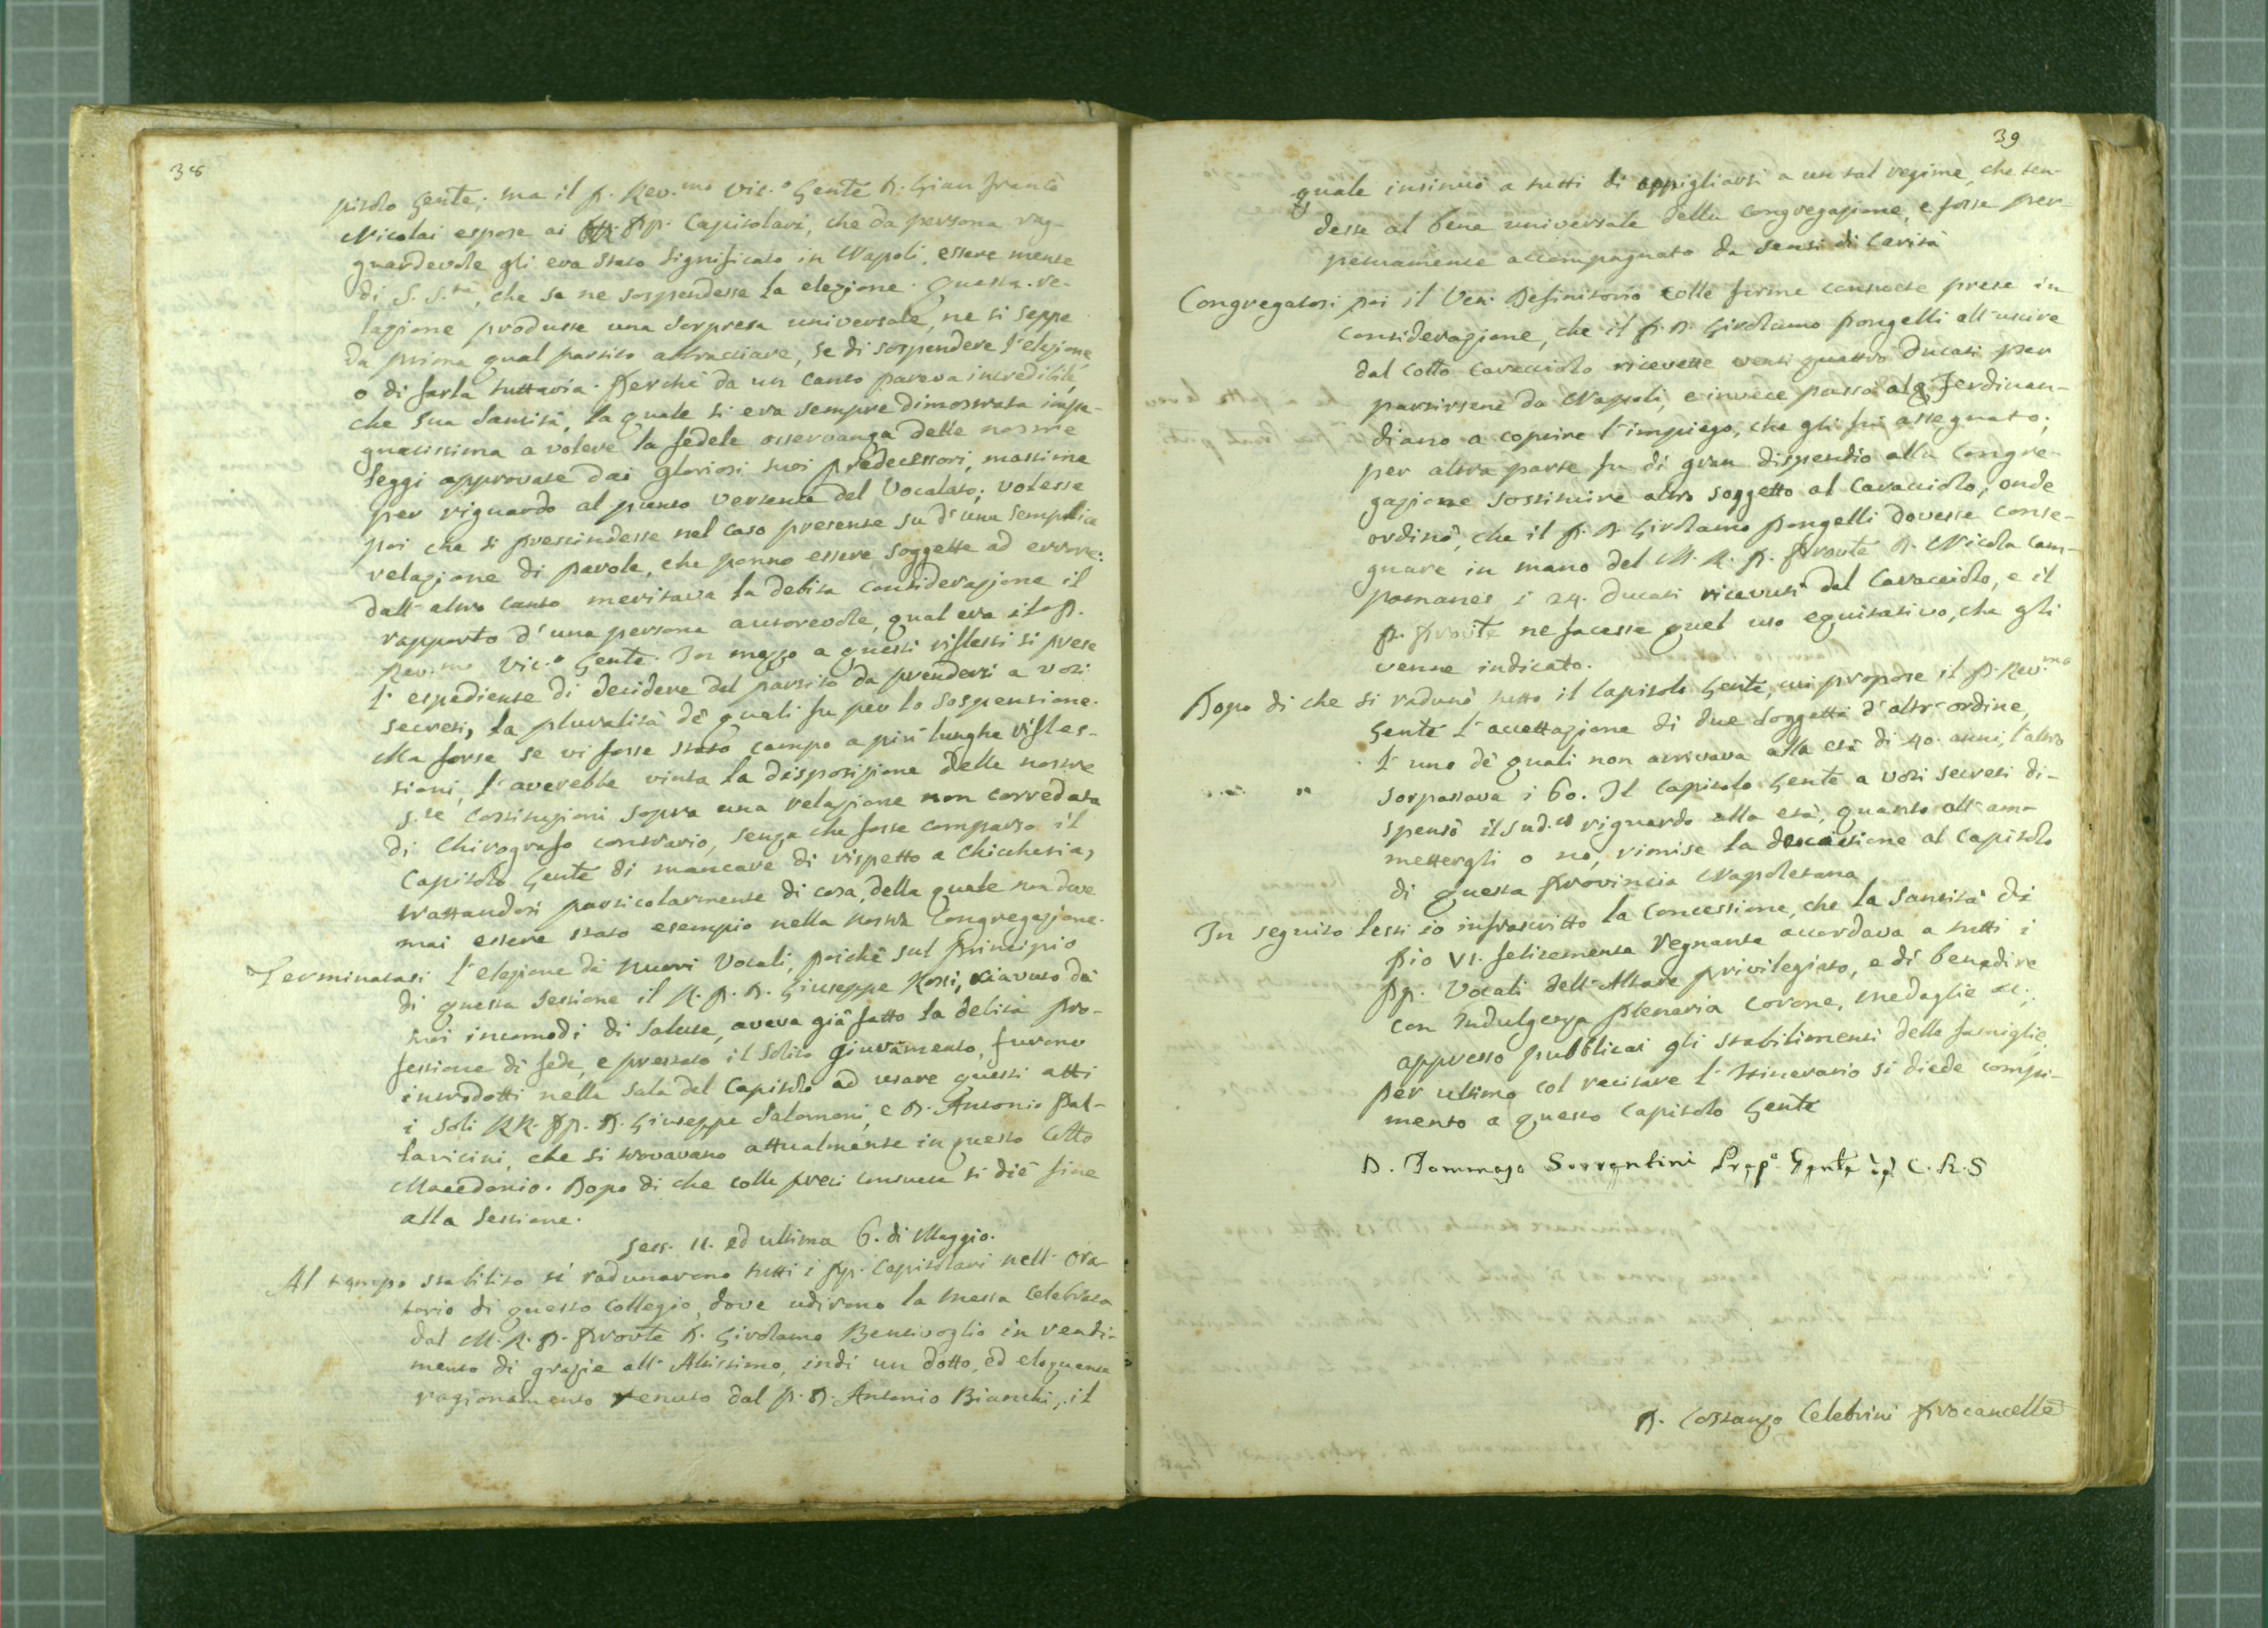 38
pitolo Gen̄te; ma il P. Rev.mo Vic.o Gen̄te D. Gian Franc̄o
Nicolai espose ai PP. Capitolari, che da persona rag-
guardevole gli era stato significato in Napoli, essere mente
di S. S.tà, che se ne sospendesse la elezione. Questa re-
lazione produsse una sorpresa universale, ne si seppe
da prima qual partito abbracciare, se di sospendere l'elezione,
o di farla tuttavia. Perchè da un canto pareva incredibile,
che Sua Santità, la quale si era sempre dimostrata impe-
gnatissima a volere la fedele osservanza delle nostre
Leggi approvate dai gloriosi suoi predecessori, massime
per riguardo al punto vertente del Vocalato; volesse
poi che si prescindesse nel caso presente su d'una semplice
relazione di parole, che ponno essere soggette ad errore:
dall'altro canto meritava la debita considerazione il
rapporto d'una persona autorevole, qual era il P.
Rev.mo Vic.o Gen̄te. In mezzo a questi riflessi si prese
l'espediente di decidere del partito da prendersi a voti
secreti, la pluralità de' quali fu per la sospensione.
Ma forse se vi fosse stato campo a più lunghe rifles-
sioni, l'averebbe vinta la disposizione delle nostre
S.te Costituzioni sopra una relazione non corredata
di Chirografo contrario, senza che fosse comparso il
Capitolo Gen̄te di mancare di rispetto a chicchesia,
trattandosi particolarmente di cosa, della quale non deve
mai essere stato esempio nella nostra Congregazione.
Terminatasi l'elezione de' nuovi Vocali, poichè sul principio
di questa sessione il R. P. D. Giuseppe Rossi, riavuto da'
suoi incomodi di salute, aveva già fatto la debita pro-
fessione di fede, e prestato il solito giuramento, furono
introdotti nella sala del Capitolo ad usare questi atti
i soli RR. PP. D. Giuseppe Salomoni, e D. Antonio Pal-
lavicini, che si trovavano attualmente in questo Collo
Macedonio. Dopo di che colle preci consuete si diè fine
alla sessione.
Sess. 11. ed ultima 6. di Maggio.
Al tempo stabilito si radunarono tutti i PP. Capitolari nell'Ora-
torio di questo Collegio, dove udirono la messa celebrata
dal M. R. P. Provle D. Girolamo Bentivoglio in rendi-
mento di grazie all'Altissimo, indi un dotto, ed eloquente
ragionamento tenuto dal P. D. Antonio Bianchi, il
39
quale insinuò a tutti di appigliarsi a un tal regime, che ten-
desse al bene universale della Congregazione, e fosse per-
petuamente accompagnato da sensi di carità
Congregatosi poi il Ven. Definitorio colle forme consuete prese in
considerazione, che il P. D. Girolamo Pongelli all'uscire
dal Collo Caracciolo ricevette venti quattro ducati per
partirsene da Napoli, e invece passò al Ferdinan-
diano a coprire l'impiego, che gli fu assegnato;
per altra parte fu di gran dispendio alla Congre-
gazione sostituire altro soggetto al Caracciolo; onde
ordinò, che il P. D. Girolamo Pongelli dovesse conse-
gnare in mano del M. R. P. Provle D. Nicola Cam-
pomanes i 24. ducati ricevuti dal Caracciolo, e il
P. Provle ne facesse quel uso equitativo, che gli
venne indicato.
Dopo di che si radunò tutto il Capitolo Gen̄te, cui propose il P. Rev.mo
Gen̄te l'accettazione di due soggetti d'altr'ordine,
l'uno de' quali non arrivava alla età di 40. anni, l'altro
sorpassava i 60. Il Capitolo Gen̄te a voti secreti di-
spensò il sud.o riguardo alla età, quanto all'am-
mettergli o nò, rimise la decisione al Capitolo
di questa Provincia Napoletana
In seguito lessi io infrascritto la Concessione, che la Santità di
Pio VI. felicemente regnante accordava a tutti i
PP. Vocali dell'Altare privilegiato, e di benedire
con Indulgenza Plenaria corone, medaglie &c;
appresso pubblicai gli stabilimenti delle famiglie.
Per ultimo col recitare l'Itinerario si diede compi-
mento a questo Capitolo Gen̄te
D. Tommaso Sorrentini Prep.o Gen̄te C. R. S
D. Costanzo Celebrini Procancelle